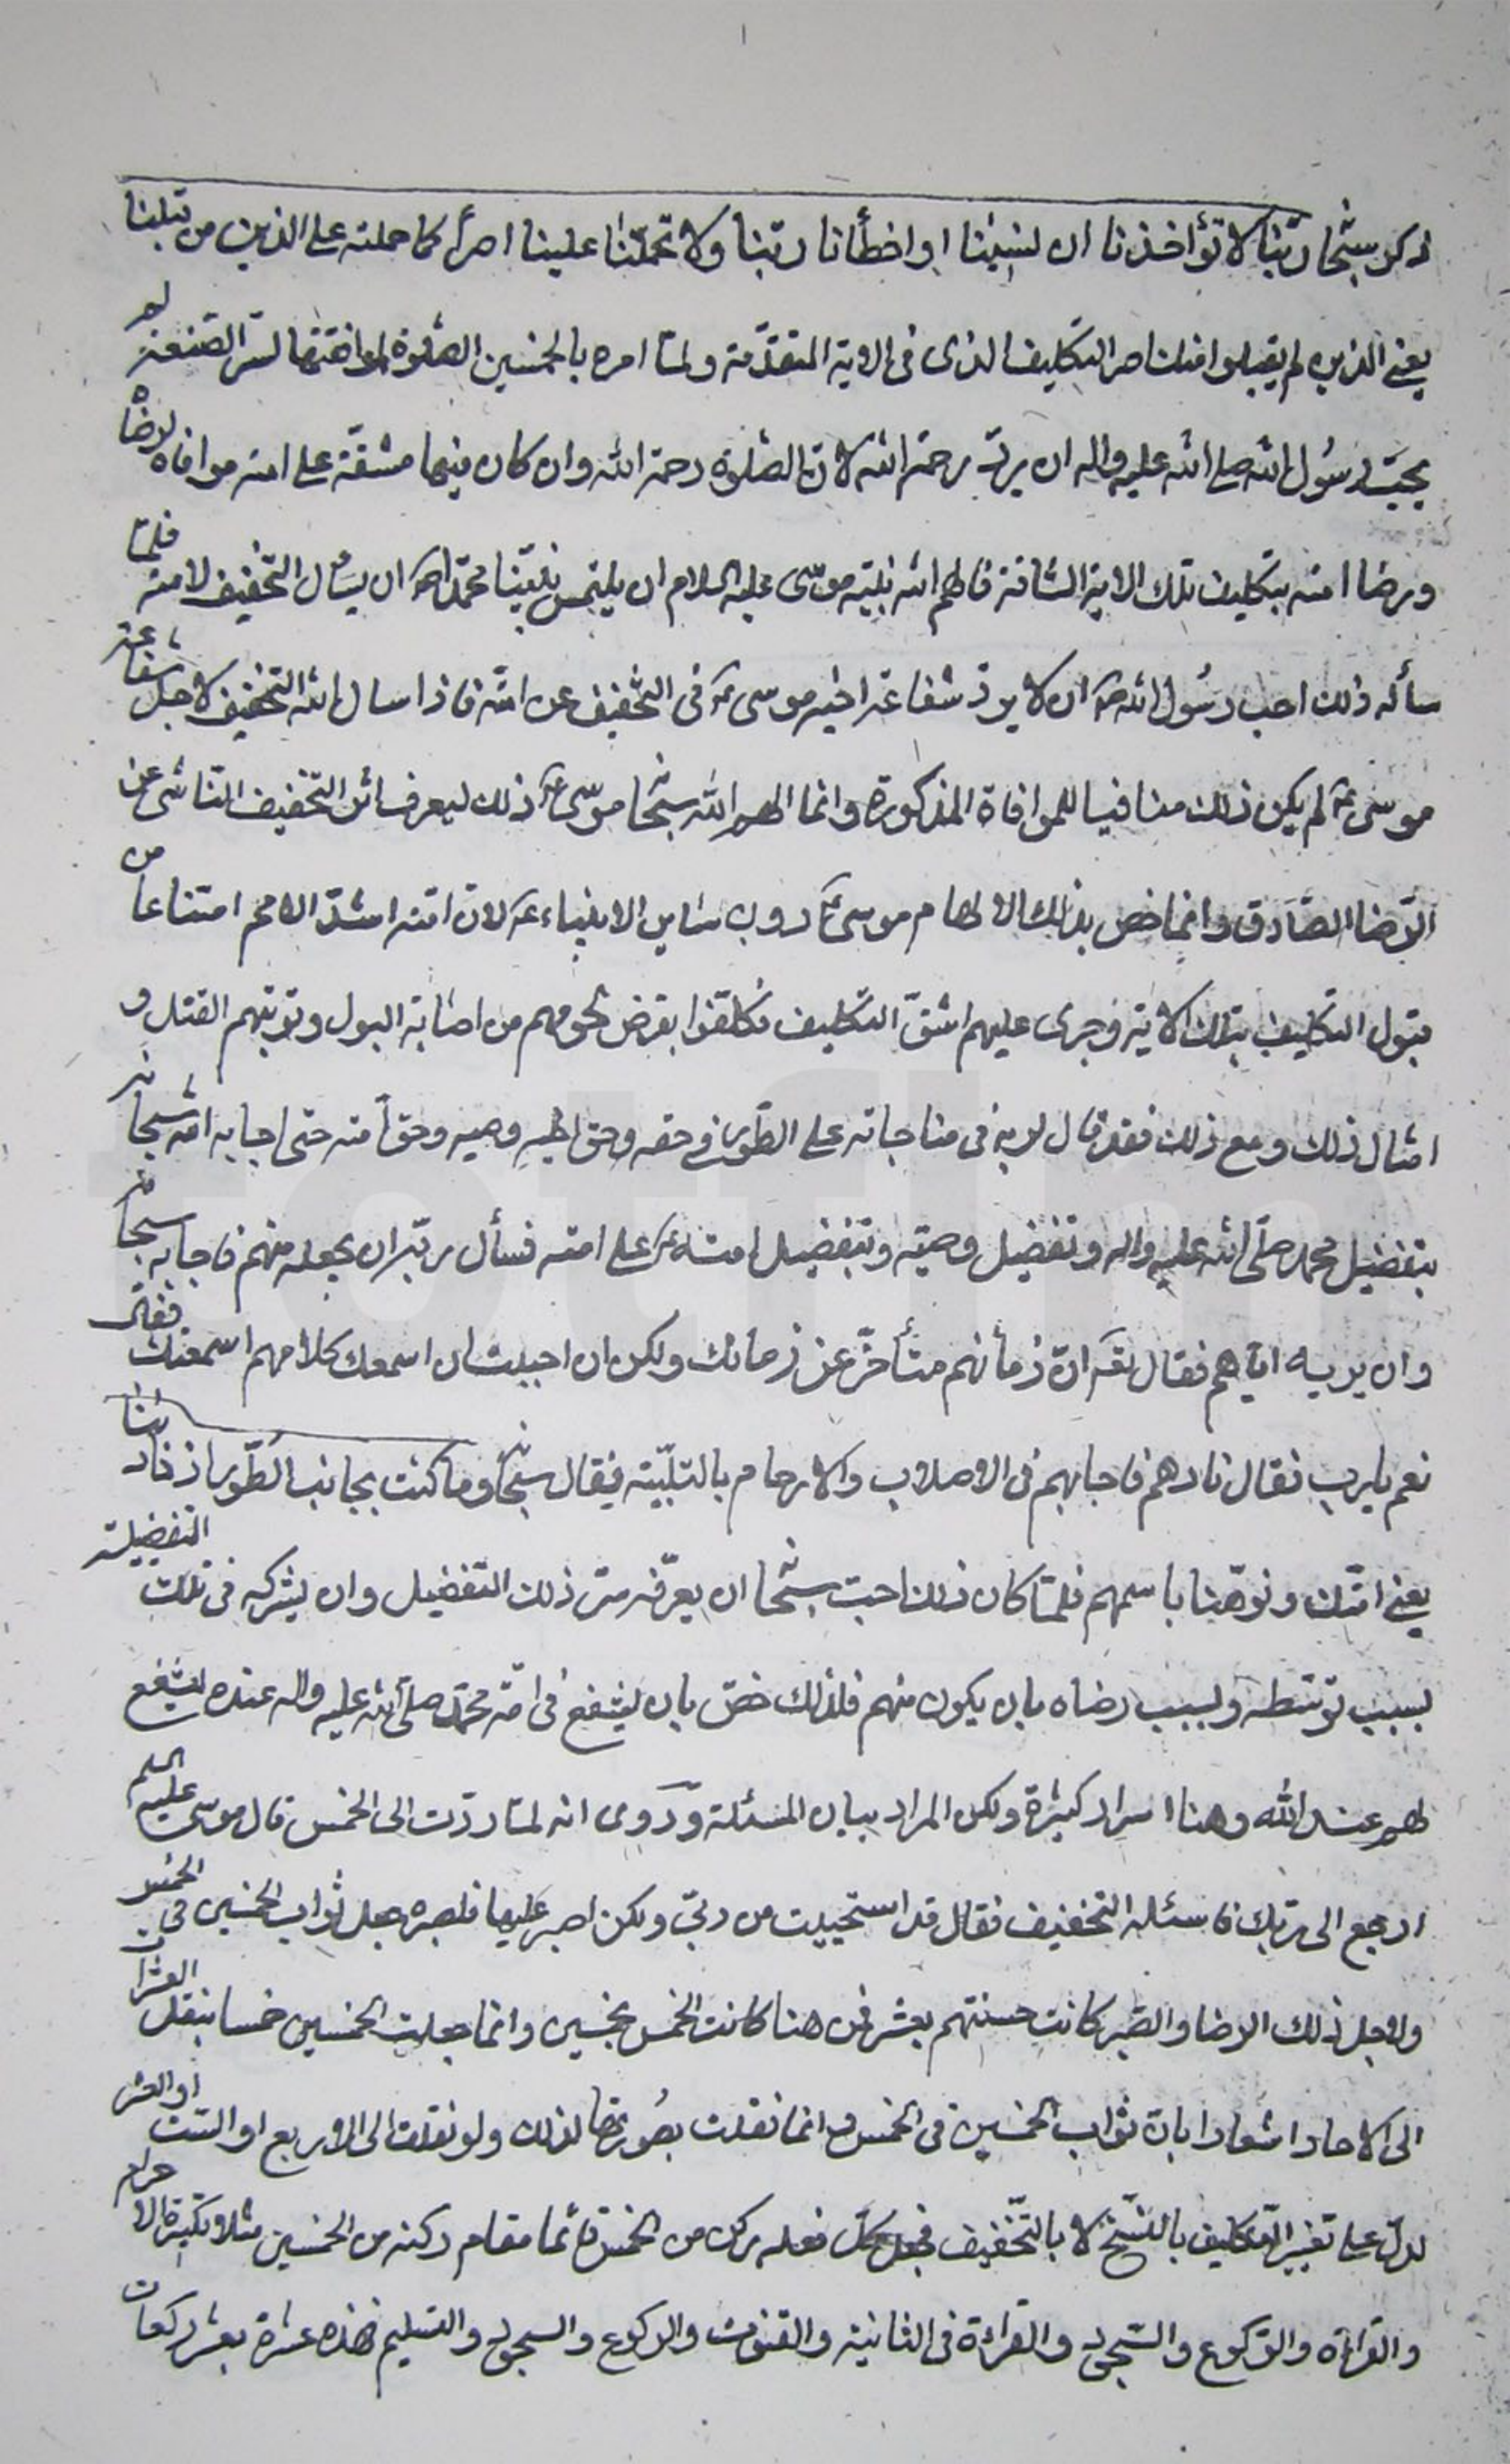 ذكر سبحانه ربّنا لا تؤاخذنا ان نسينا او اخطأنا ربّنا ولا تحمّلنا علينا اصراً كما حملته على الذين من قبلنا
يعنى الذين لم يقبلوا فلك اصر التكليف الذى فى الاية المتقدّمة ولمّا امره بالخمسين الصّلوة لموافقتها لسرّ الصنعة لم
يحبّ رسُول الله صلى الله عليه واله ان يردّ رحمة الله لانّ الصّلوة رحمة الله وان كان فيها مشقّة على امته موافاه لرضاه
ورضا امته بتكليف تلك الاية الشاقة فالهم الله نبيّه موسى عليه السلام ان يلتمس نبيّنا محمّداً ص ان يسأل التخفيف لامته فلمّا
سأله ذلك احب رسُول الله ص ان لا يردّ شفاعة اخيه موسى ع فى التخفيف عن امّته فاذا سال الله التخفيف لاجل شفاعة
موسى ع لم يكن ذلك منافيا للموافاة المذكورة وانما الهم الله سبحانه موسى ع ذلك ليعرف انّ التخفيف النّاشى عن
الرّضا الصّادق وانما خص بذلك الالهام موسى ع دون ساير الانبياء ع لانّ امّته اشدّ الامم امتناعا من
قبول التكليف بتلك الاية وجرى عليهم اشقّ التكليف فكلّفوا بقرض لحومهم من اصابة البول وتوبتهم القتل و
امثال ذلك ومع ذلك فقد قال لربه فى مناجاته على الطّور فى حقه وحق اخيه وصيه وحق امته حتى اجابه الله سبحانه
بتفضيل محمد صلّى الله عليه واله وتفضيل وصيّه وبتفضيل امته ع على امته فسأل ربّه ان يجعله منهم فاجابه سبحانه
وان يريه ايّاهم فقال له انّ زمانهم متأخّر عن زمانك ولكن ان احببت ان اسمعك كلامهم اسمعتك فقال
نعم يا رب فقال نادهم فاجابهم فى الاصلاب والارحام بالتلبّية فقال سبحانه وما كنت بجانب الطّور اذ نادينا
يعنى امّتك ونوّهنا باسمهم فلمّا كان ذلك احبّ سبحانه ان يعرّفه سرّ ذلك التفضيل وان يشركه فى تلك التفضيلة
بسبب توسّطه وبسبب رضاه بان يكون منهم فلذلك خصّ بان يشفع فى امّة محمّد صلّى الله عليه واله عنده ليشفع
لهم عند الله وهنا اسرار كثيرة ولكن المراد بيان المسئلة وروى انه لمّا ردّت الى الخمس قال موسى عليه السلم
ارجع الى ربّك فاسئله التخفيف فقال قد استحييت من ربّى ولكن اصبر عليها فلصبره جعل ثواب الخمسين فى الخمس
ولاجل ذلك الرضا والصّبر كانت حسنتهم بعشر فمن هنا كانت الخمس بخمسين وانما جعلت الخمسين خمسا بنقل العشرات
الى الاحاد اشعارا بانّ ثواب الخمسين فى الخمس وانما نقلت بصُورتها لذلك ولو نقلت الى الاربع او الستّ او العشر
لدلّ على تغيير التّكليف بالنّسخ لا بالتّخفيف فجعل كلّ فعله ركن من الخمس قائما مقام ركنه من الخمسين مثلا تكبيرة الاحرام
والقراءة والرّكوع والسّجود والقراءة فى الثانية والقنوت والركوع والسجود والتسليم فهذه عشرة بعشر ركعات